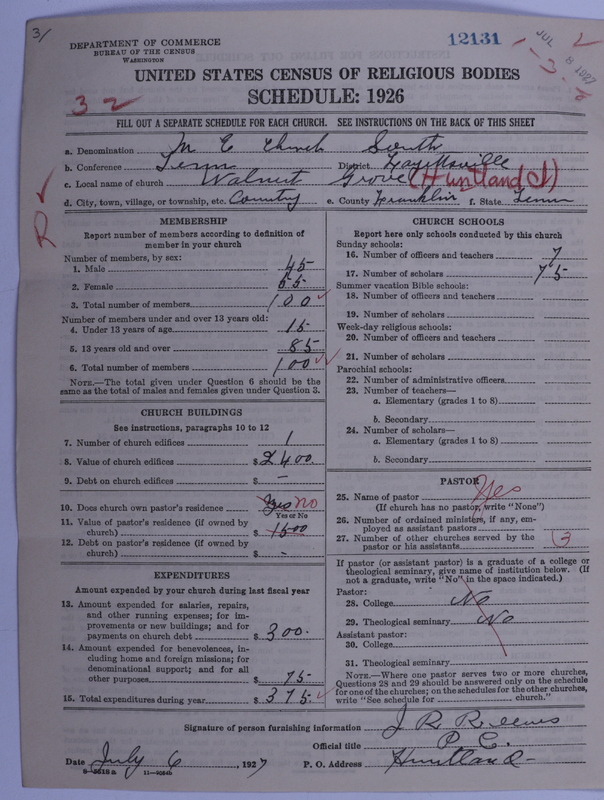 3/
DEPARTMENT OF COMMERCE
BUREAU OF THE CENSUS
WASHINGTON
12131
JUL 8 1927
UNITED STATES CENSUS OF RELIGIOUS BODIES
SCHEDULE: 1926
32
FILL OUT A SEPARATE SCHEDULE FOR EACH CHURCH. SEE INSTRUCTIONS ON THE BACK OF THIS SHEET
a. Denomination M E Church South
b. Conference Tenn District Fayettsville
c. Local name of church Walnut Grove (Huntland
d. City, town, village, or township, etc. Country e. County Franklin f. State Tenn
R
MEMBERSHIP
Report number of members according to definition of member in your church
Number of members, by sex:
1. Male 45
2. Female 55
3. Total number of members 100
Number of members under and over 13 years old:
4. Under 13 years of age 15
5. 13 years old and over 85
6. Total number of members 100
NOTE.—The total given under Question 6 should be the same as the total of males and females given under Question 3.
CHURCH BUILDINGS
See instructions, paragraphs 10 to 12
7. Number of church edifices 1
8. Value of church edifices $2400.
9. Debt on church edifices $ –
10. Does church own pastor's residence Yes No
Yes or No
11. Value of pastor's residence (if owned by church) $ 1500
12. Debt on pastor's residence (if owned by church) $ -
EXPENDITURES
Amount expended by your church during last fiscal year
13. Amount expended for salaries, repairs, and other running expenses; for improvements or new buildings; and for payments on church debt $ 300.
14. Amount expended for benevolences, including home and foreign missions; for denominational support; and for all other purposes $ 75
15. Total expenditures during year $ 375
CHURCH SCHOOLS
Report here only schools conducted by this church
Sunday schools:
16. Number of officers and teachers 7
17. Number of scholars 75
Summer vacation Bible schools:
18. Number of officers and teachers
19. Number of scholars
Week-day religious schools:
20. Number of officers and teachers
21. Number of scholars
Parochial schools:
22. Number of administrative officers
23. Number of teachers—
a. Elementary (grades 1 to 8)
b. Secondary
24. Number of scholars—
a. Elementary (grades 1 to 8)
b. Secondary
PASTOR
25. Name of pastor Yes
(If church has no pastor, write "None")
26. Number of ordained ministers, if any, employed as assistant pastors
27. Number of other churches served by the pastor or his assistants 3
If pastor (or assistant pastor) is a graduate of a college or theological seminary, give name of institution below. (If not a graduate, write "No" in the space indicated.)
Pastor:
28. College No
29. Theological seminary No
Assistant pastor:
30. College
31. Theological seminary
NOTE.—Where one pastor serves two or more churches, Questions 28 and 29 should be answered only on the schedule for one of the churches; on the schedules for the other churches, write "See schedule for church."
Signature of person furnishing information J R
Official title P. C.
Date July 6, 1927 P. O. Address Huntland
8-5518a 11-9054b